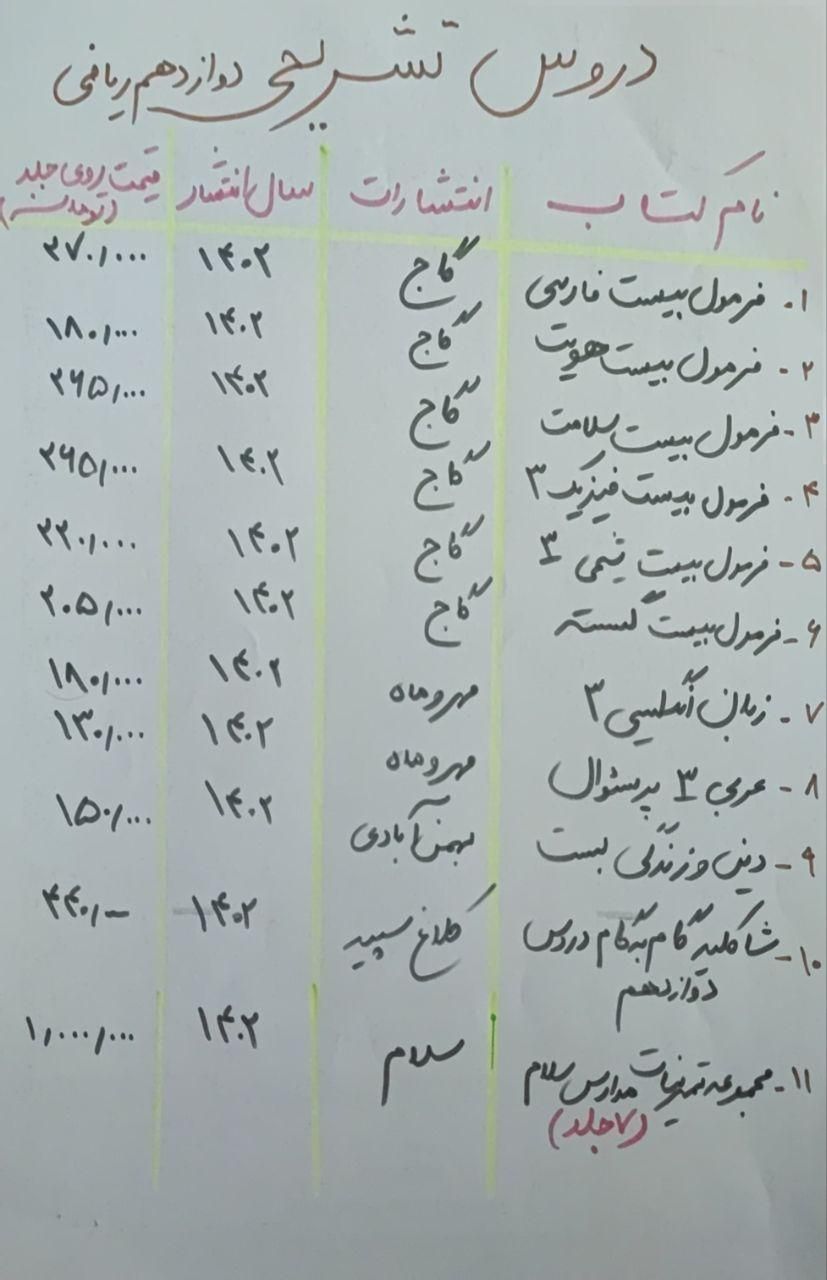 دروس تشریحی دوازدهم ریاضی
نام کتاب انتشارات سال انتشار قیمت روی جلد (تومان)
۱- فرمول بیست فارسی گاج ۱۴۰۲ ۲۷۰/۰۰۰
۲- فرمول بیست هویت گاج ۱۴۰۲ ۱۸۰/۰۰۰
۳- فرمول بیست سلامت گاج ۱۴۰۲ ۲۶۵/۰۰۰
۴- فرمول بیست فیزیک ۳ گاج ۱۴۰۲ ۲۶۵/۰۰۰
۵- فرمول بیست شیمی ۳ گاج ۱۴۰۲ ۲۲۰/۰۰۰
۶- فرمول بیست گسسته گاج ۱۴۰۲ ۲۰۵/۰۰۰
۷- زبان انگلیسی ۳ مهروماه ۱۴۰۲ ۱۸۰/۰۰۰
۸- عربی ۳ پرسئوال مهروماه ۱۴۰۲ ۱۳۰/۰۰۰
۹- دین و زندگی بیست بهمن آبادی ۱۴۰۲ ۱۵۰/۰۰۰
۱۰- شاکلید گام به گام دروس کلاغ سپید ۱۴۰۲
دوازدهم
۱۱- مجموعه تمرینات مدارس سلام سلام ۱۴۰۲ ۱/۰۰۰/۰۰۰
(۷ جلد)